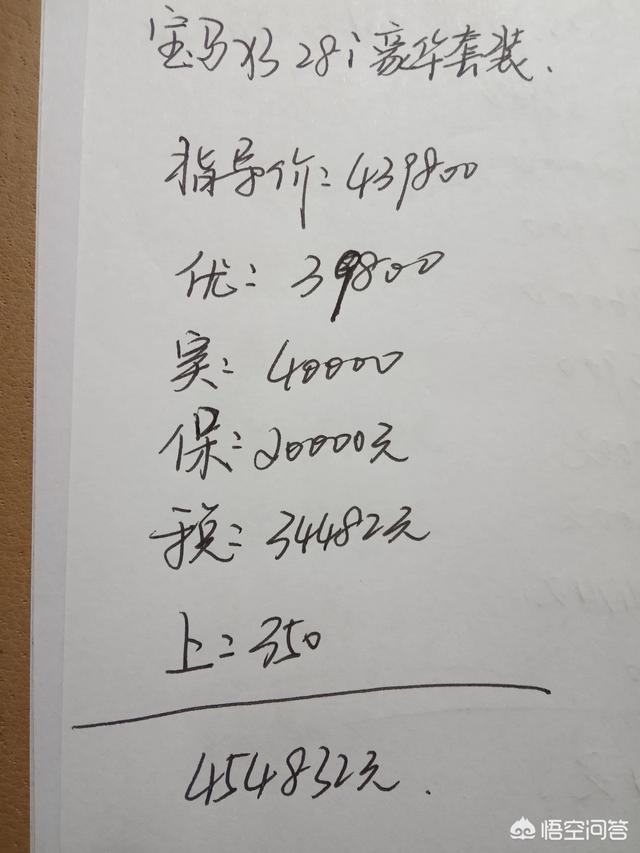 宝马X3 28i豪华套装.
指导价:439800
优:39800
实:40000
保:20000元
税:34482元
上:350
454832元.
悟空问答